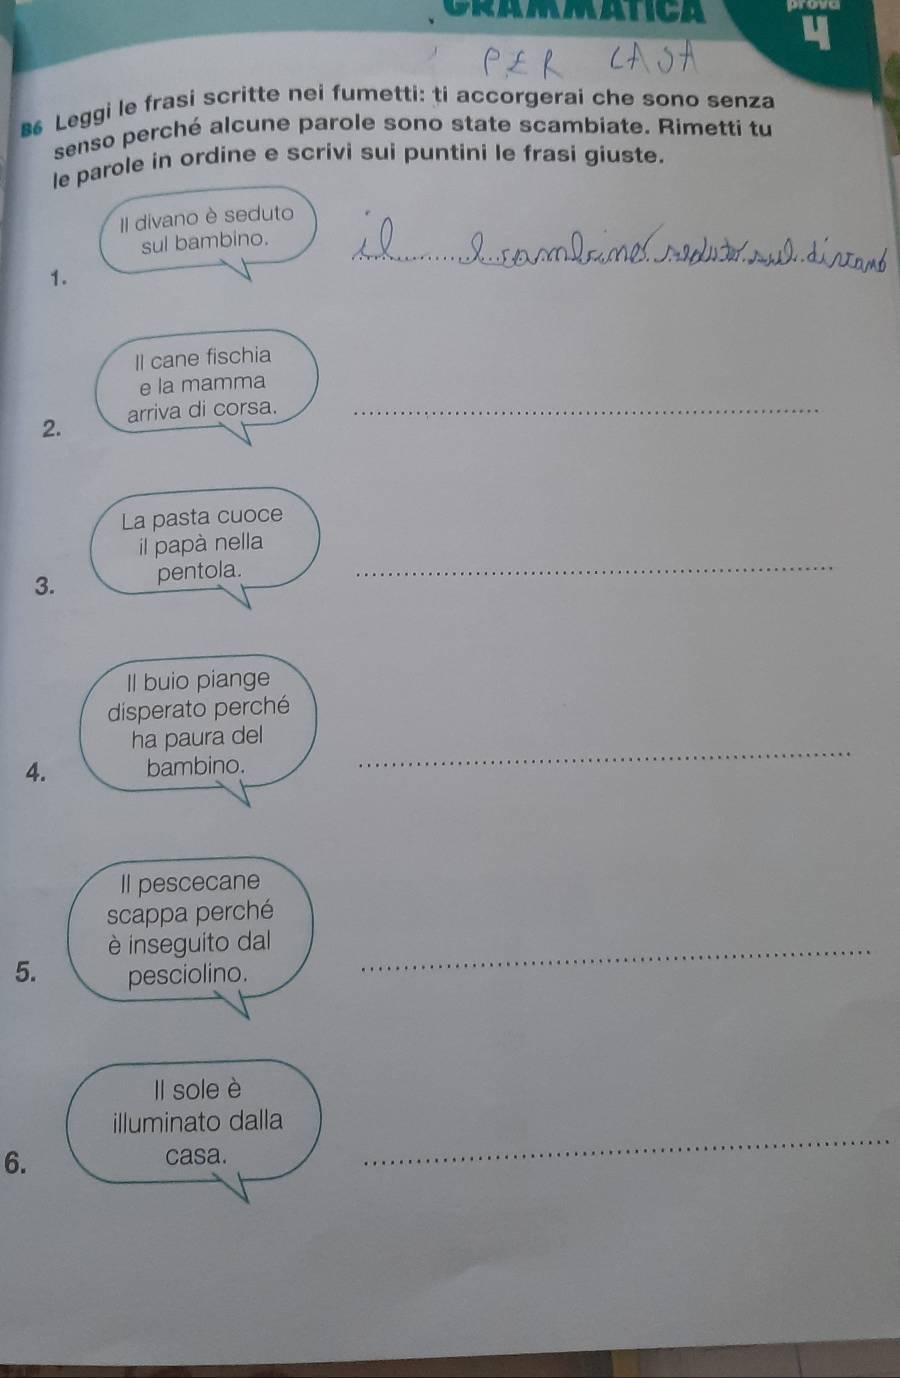 GRAMMATICA
prova
4
PER CASA
B6 Leggi le frasi scritte nei fumetti: ti accorgerai che sono senza
senso perché alcune parole sono state scambiate. Rimetti tu
le parole in ordine e scrivi sui puntini le frasi giuste.
Il divano è seduto
sul bambino.
1.
il seduto sul divano
Il cane fischia
e la mamma
arriva di corsa.
2.
La pasta cuoce
il papà nella
pentola.
3.
Il buio piange
disperato perché
ha paura del
bambino.
4.
Il pescecane
scappa perché
è inseguito dal
pesciolino.
5.
Il sole è
illuminato dalla
casa.
6.